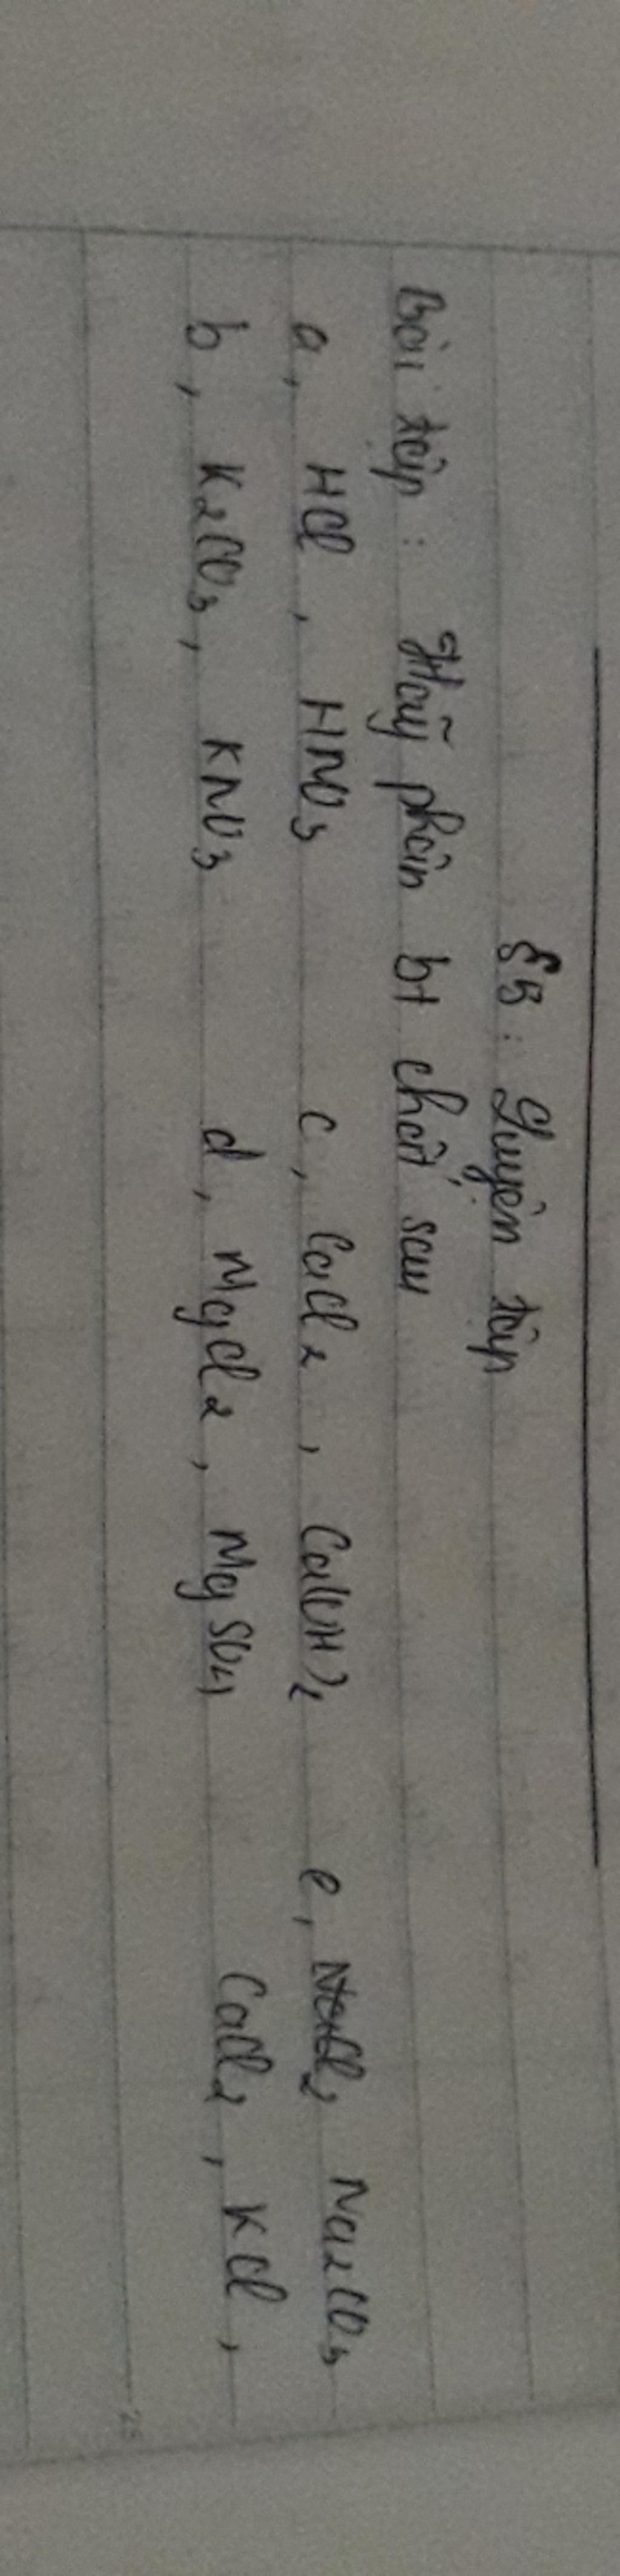 §5: Luyện tập
Bài tập: Hãy phân bt chất sau
a, HCl, HNO3 c, CaCl2, Ca(OH)2 e, Na2CO3
b, K2CO3, KNO3 d, MgCl2, MgSO4 CaCl2, KCl,